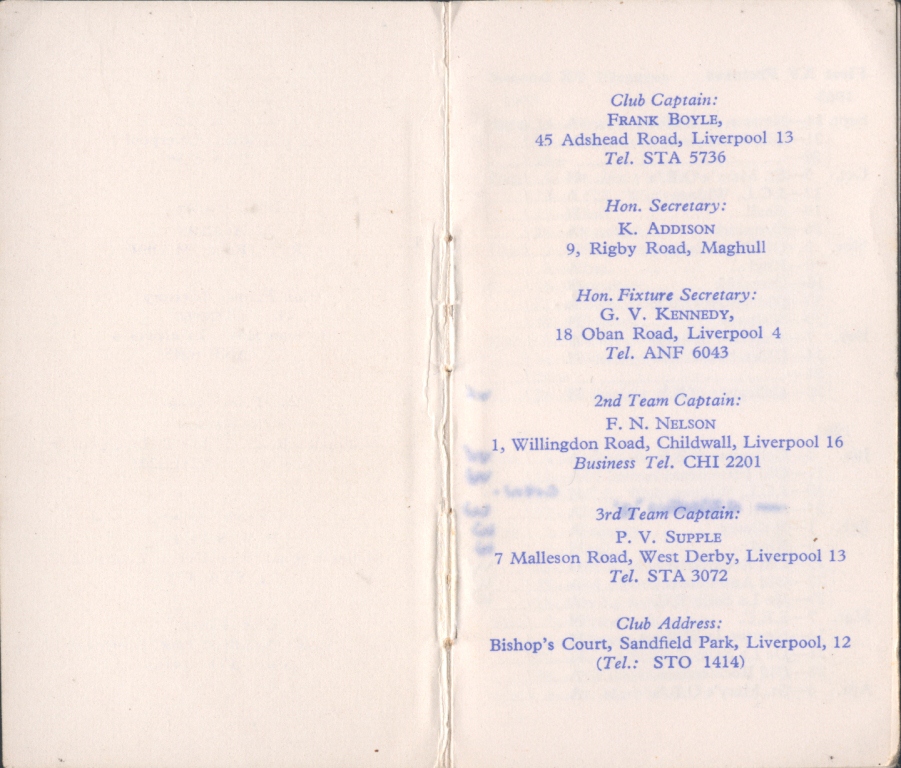 Club Captain:
FRANK BOYLE,
45 Adshead Road, Liverpool 13
Tel. STA 5736
Hon. Secretary:
K. ADDISON
9, Rigby Road, Maghull
Hon. Fixture Secretary:
G. V. KENNEDY,
18 Oban Road, Liverpool 4
Tel. ANF 6043
2nd Team Captain:
F. N. NELSON
1, Willingdon Road, Childwall, Liverpool 16
Business Tel. CHI 2201
3rd Team Captain:
P. V. SUPPLE
7 Malleson Road, West Derby, Liverpool 13
Tel. STA 3072
Club Address:
Bishop's Court, Sandfield Park, Liverpool, 12
(Tel.: STO 1414)